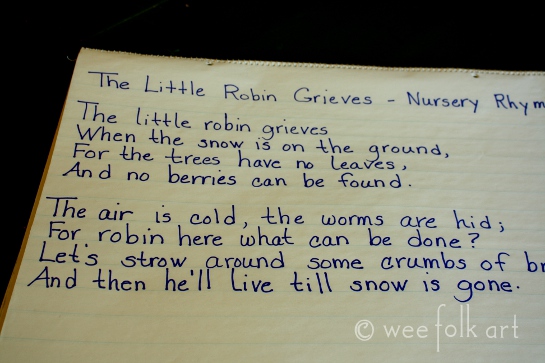 The Little Robin Grieves - Nursery Rhym
The little robin grieves
When the snow is on the ground,
For the trees have no leaves,
And no berries can be found.
The air is cold, the worms are hid;
For robin here what can be done?
Let's strow around some crumbs of br
And then he'll live till snow is gone.
© wee folk art